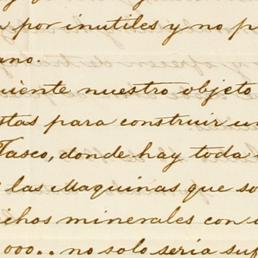 por inutiles y no p
ano.
uiente nuestro objeto
stas para construir un
Tasco, donde hay toda
las Maquinas que so
ichos minerales con
000.. no solo seria suf